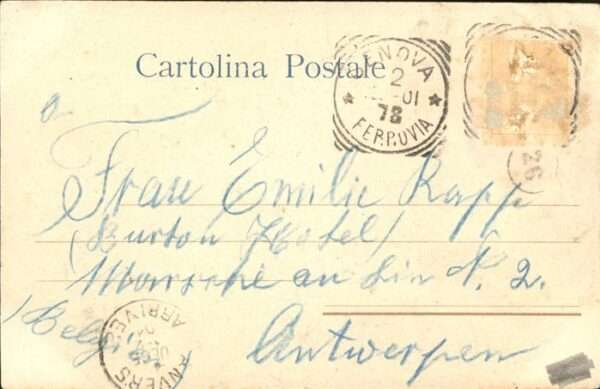 Cartolina Postale
GENOVA
2
01
78
FERROVIA
26
a
Frau Emilie Rapp
(Burton Hotel)
Marché au Lin N. 2.
(Belgi
Antwerpen
ANVERS
ARRIVEE